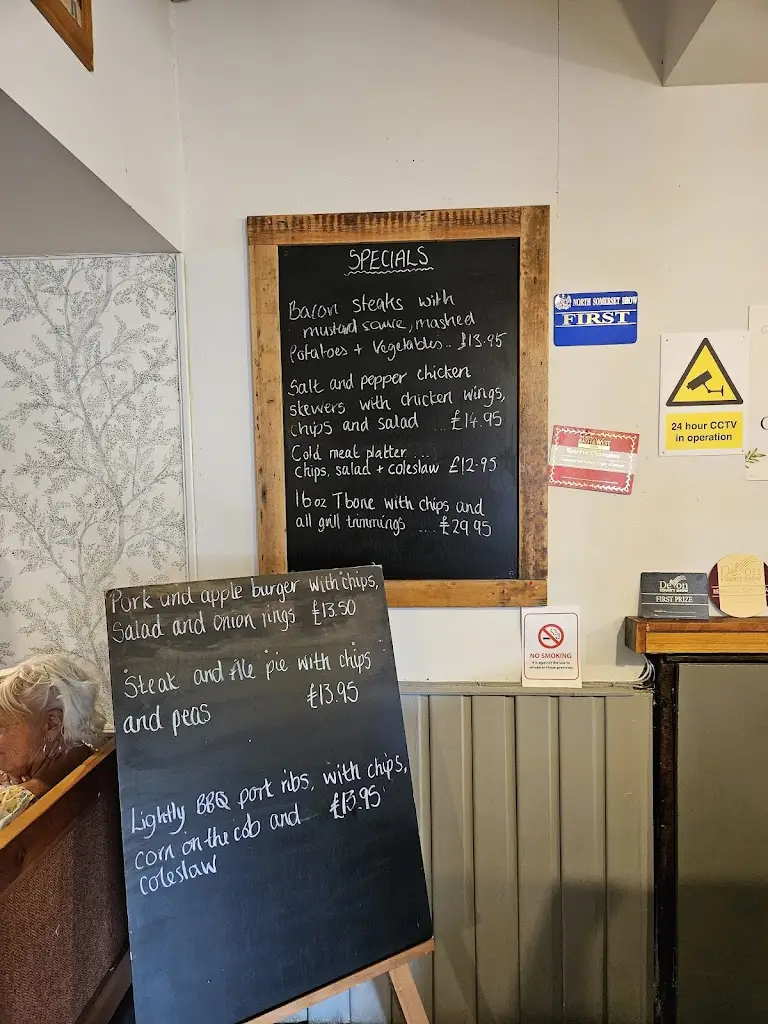 SPECIALS
Bacon steaks with
mustard sauce, mashed
Potatoes + Vegetables.. £13.95
Salt and pepper chicken
skewers with chicken wings,
chips and salad ... £14.95
Cold meat platter ...
chips, salad + coleslaw £12.95
16oz Tbone with chips and
all grill trimmings .... £29.95
Pork and apple burger with chips,
Salad and onion rings £13.50
Steak and Ale pie with chips
and peas £13.95
Lightly BBQ pork ribs, with chips,
corn on the cob and £13.95
coleslaw
NORTH SOMERSET SHOW
FIRST
24 hour CCTV
in operation
Reserve Champion
Devon
COUNTY SHOW
FIRST PRIZE
Devon
COUNTY SHOW
NO SMOKING
It is against the law to
smoke in these premises